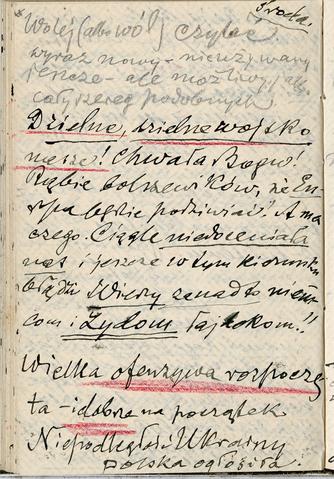 Środa.
Wolej (albo wól) czytać
wyraz nowy – nieużywany
jeszcze – ale możliwy jak
cały szereg podobnych
Dzielne, dzielne wojsko
nasze! Chwała Bogu!
Rąbie bolszewików, że Eu-
ropa będzie podziwiać! A ma
czego. Ciągle niedoceniała
nas i jeszcze w tym kierunku
błądzi. Wierzy zanadto niem-
com i Żydom łajdakom!!
Wielka ofenzywa rozpoczę-
ta – i dobra na początek
Niepodległość Ukrainy
Polska ogłosiła.